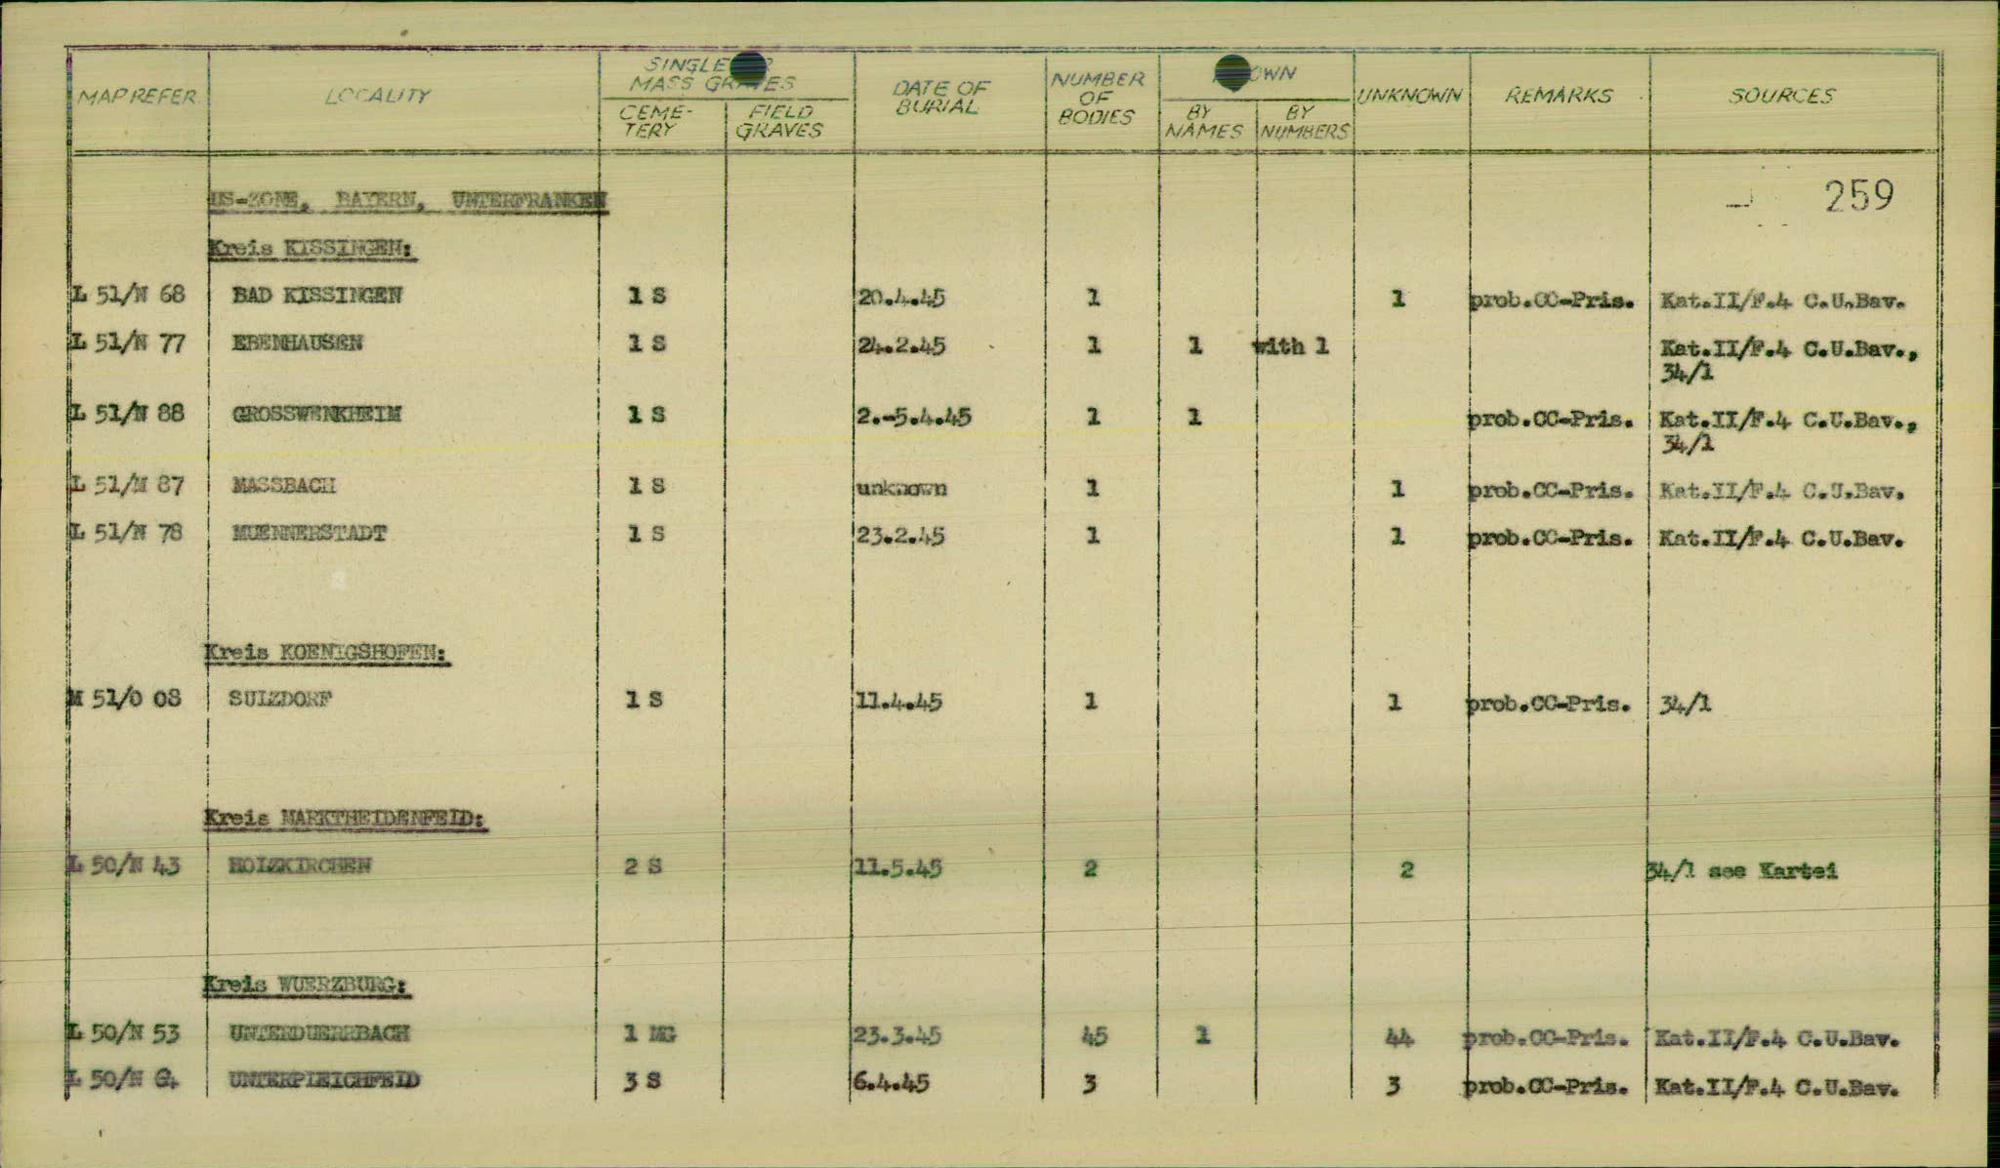 MAP REFER LOCALITY SINGLE MASS GRAVES CEME-TERY FIELD GRAVES DATE OF BURIAL NUMBER OF BODIES BY NAMES BY NUMBERS UNKNOWN REMARKS SOURCES
259
US-ZONE, BAYERN, UNTERFRANKEN
Kreis KISSINGEN:
L 51/N 68 BAD KISSINGEN 1 S 20.4.45 1 1 prob.CC-Pris. Kat.II/F.4 C.U.Bav.
L 51/N 77 EBENHAUSEN 1 S 24.2.45 1 1 with 1 Kat.II/F.4 C.U.Bav.,
34/1
L 51/N 88 GROSSWENKHEIM 1 S 2.-5.4.45 1 1 prob.CC-Pris. Kat.II/F.4 C.U.Bav.,
34/1
L 51/M 87 MASSBACH 1 S unknown 1 1 prob.CC-Pris. Kat.II/F.4 C.U.Bav.
L 51/N 78 MUENNERSTADT 1 S 23.2.45 1 1 prob.CC-Pris. Kat.II/F.4 C.U.Bav.
Kreis KOENIGSHOFEN:
M 51/O 08 SULZDORF 1 S 11.4.45 1 1 prob.CC-Pris. 34/1
Kreis MARKTHEIDENFELD:
L 50/N 43 HOLZKIRCHEN 2 S 11.5.45 2 2 34/1 see Kartei
Kreis WUERZBURG:
L 50/N 53 UNTERDUERRBACH 1 MG 23.3.45 45 1 44 prob.CC-Pris. Kat.II/F.4 C.U.Bav.
L 50/N UNTERPLEICHFELD 3 S 6.4.45 3 3 prob.CC-Pris. Kat.II/F.4 C.U.Bav.